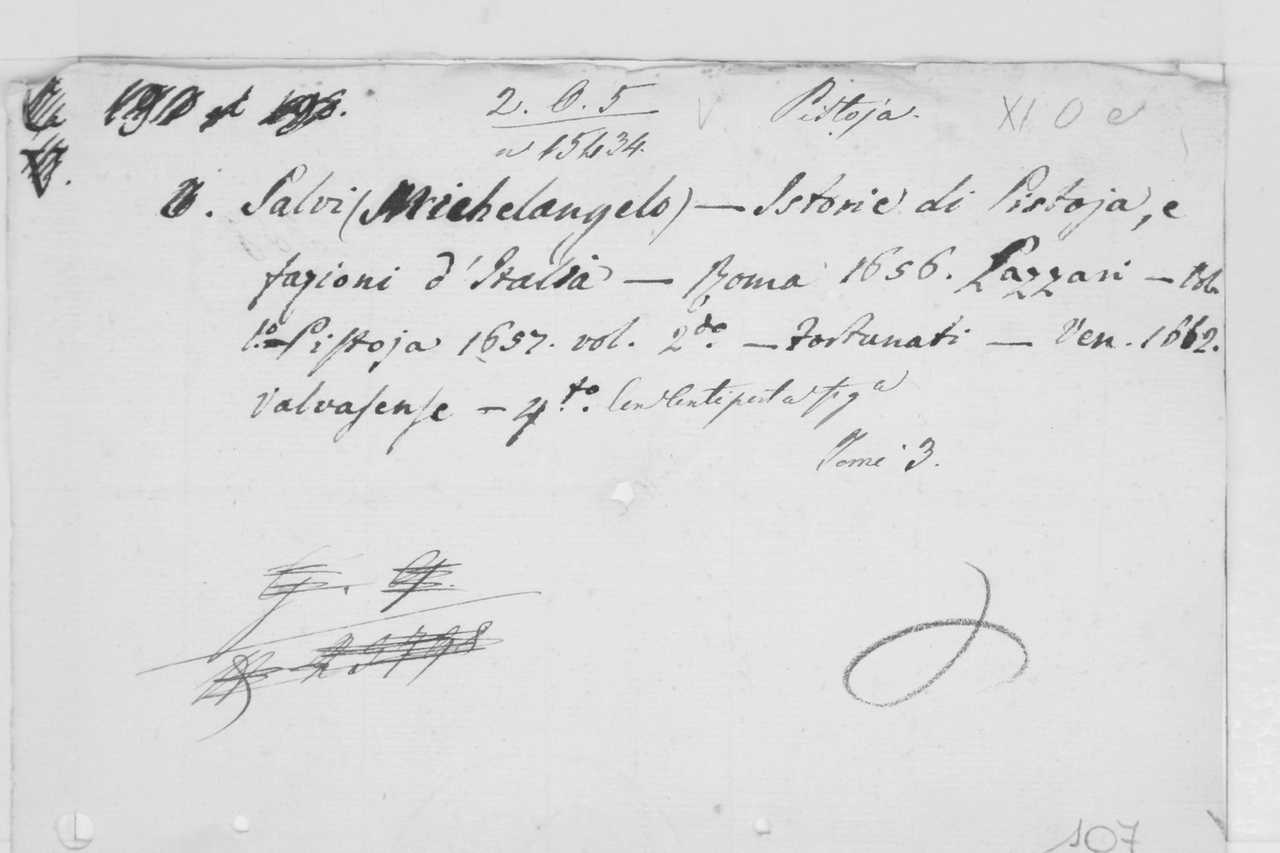 2. O. 5 Pistoja. XI O e
n 15434.
Salvi (Michelangelo) — Istorie di Pistoja, e
fazioni d'Italia — Roma 1656. Lazzari — vol.
1.o Pistoja 1657. vol. 2do. — Fortunati — Ven. 1662.
Valvasense — 4.to.
Tomi 3.
107